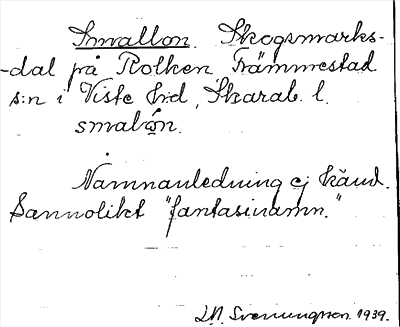 Smallon. Skogsmarks-
-dal på Rolken, Främmestad
s:n i Viste hd, Skarab. l.
smalọ́n.
Namnanledning ej känd.
Sannolikt "fantasinamn."
Sveningson. 1939.